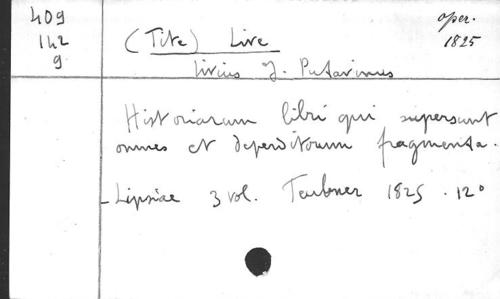 409
142
9
oper.
1825
(Tite) Live
Livius T. Patavinus
Historiarum libri qui supersunt
omnes et deperditorum fragmenta.
- Lipsiae 3 vol. Teubner 1825 . 12°